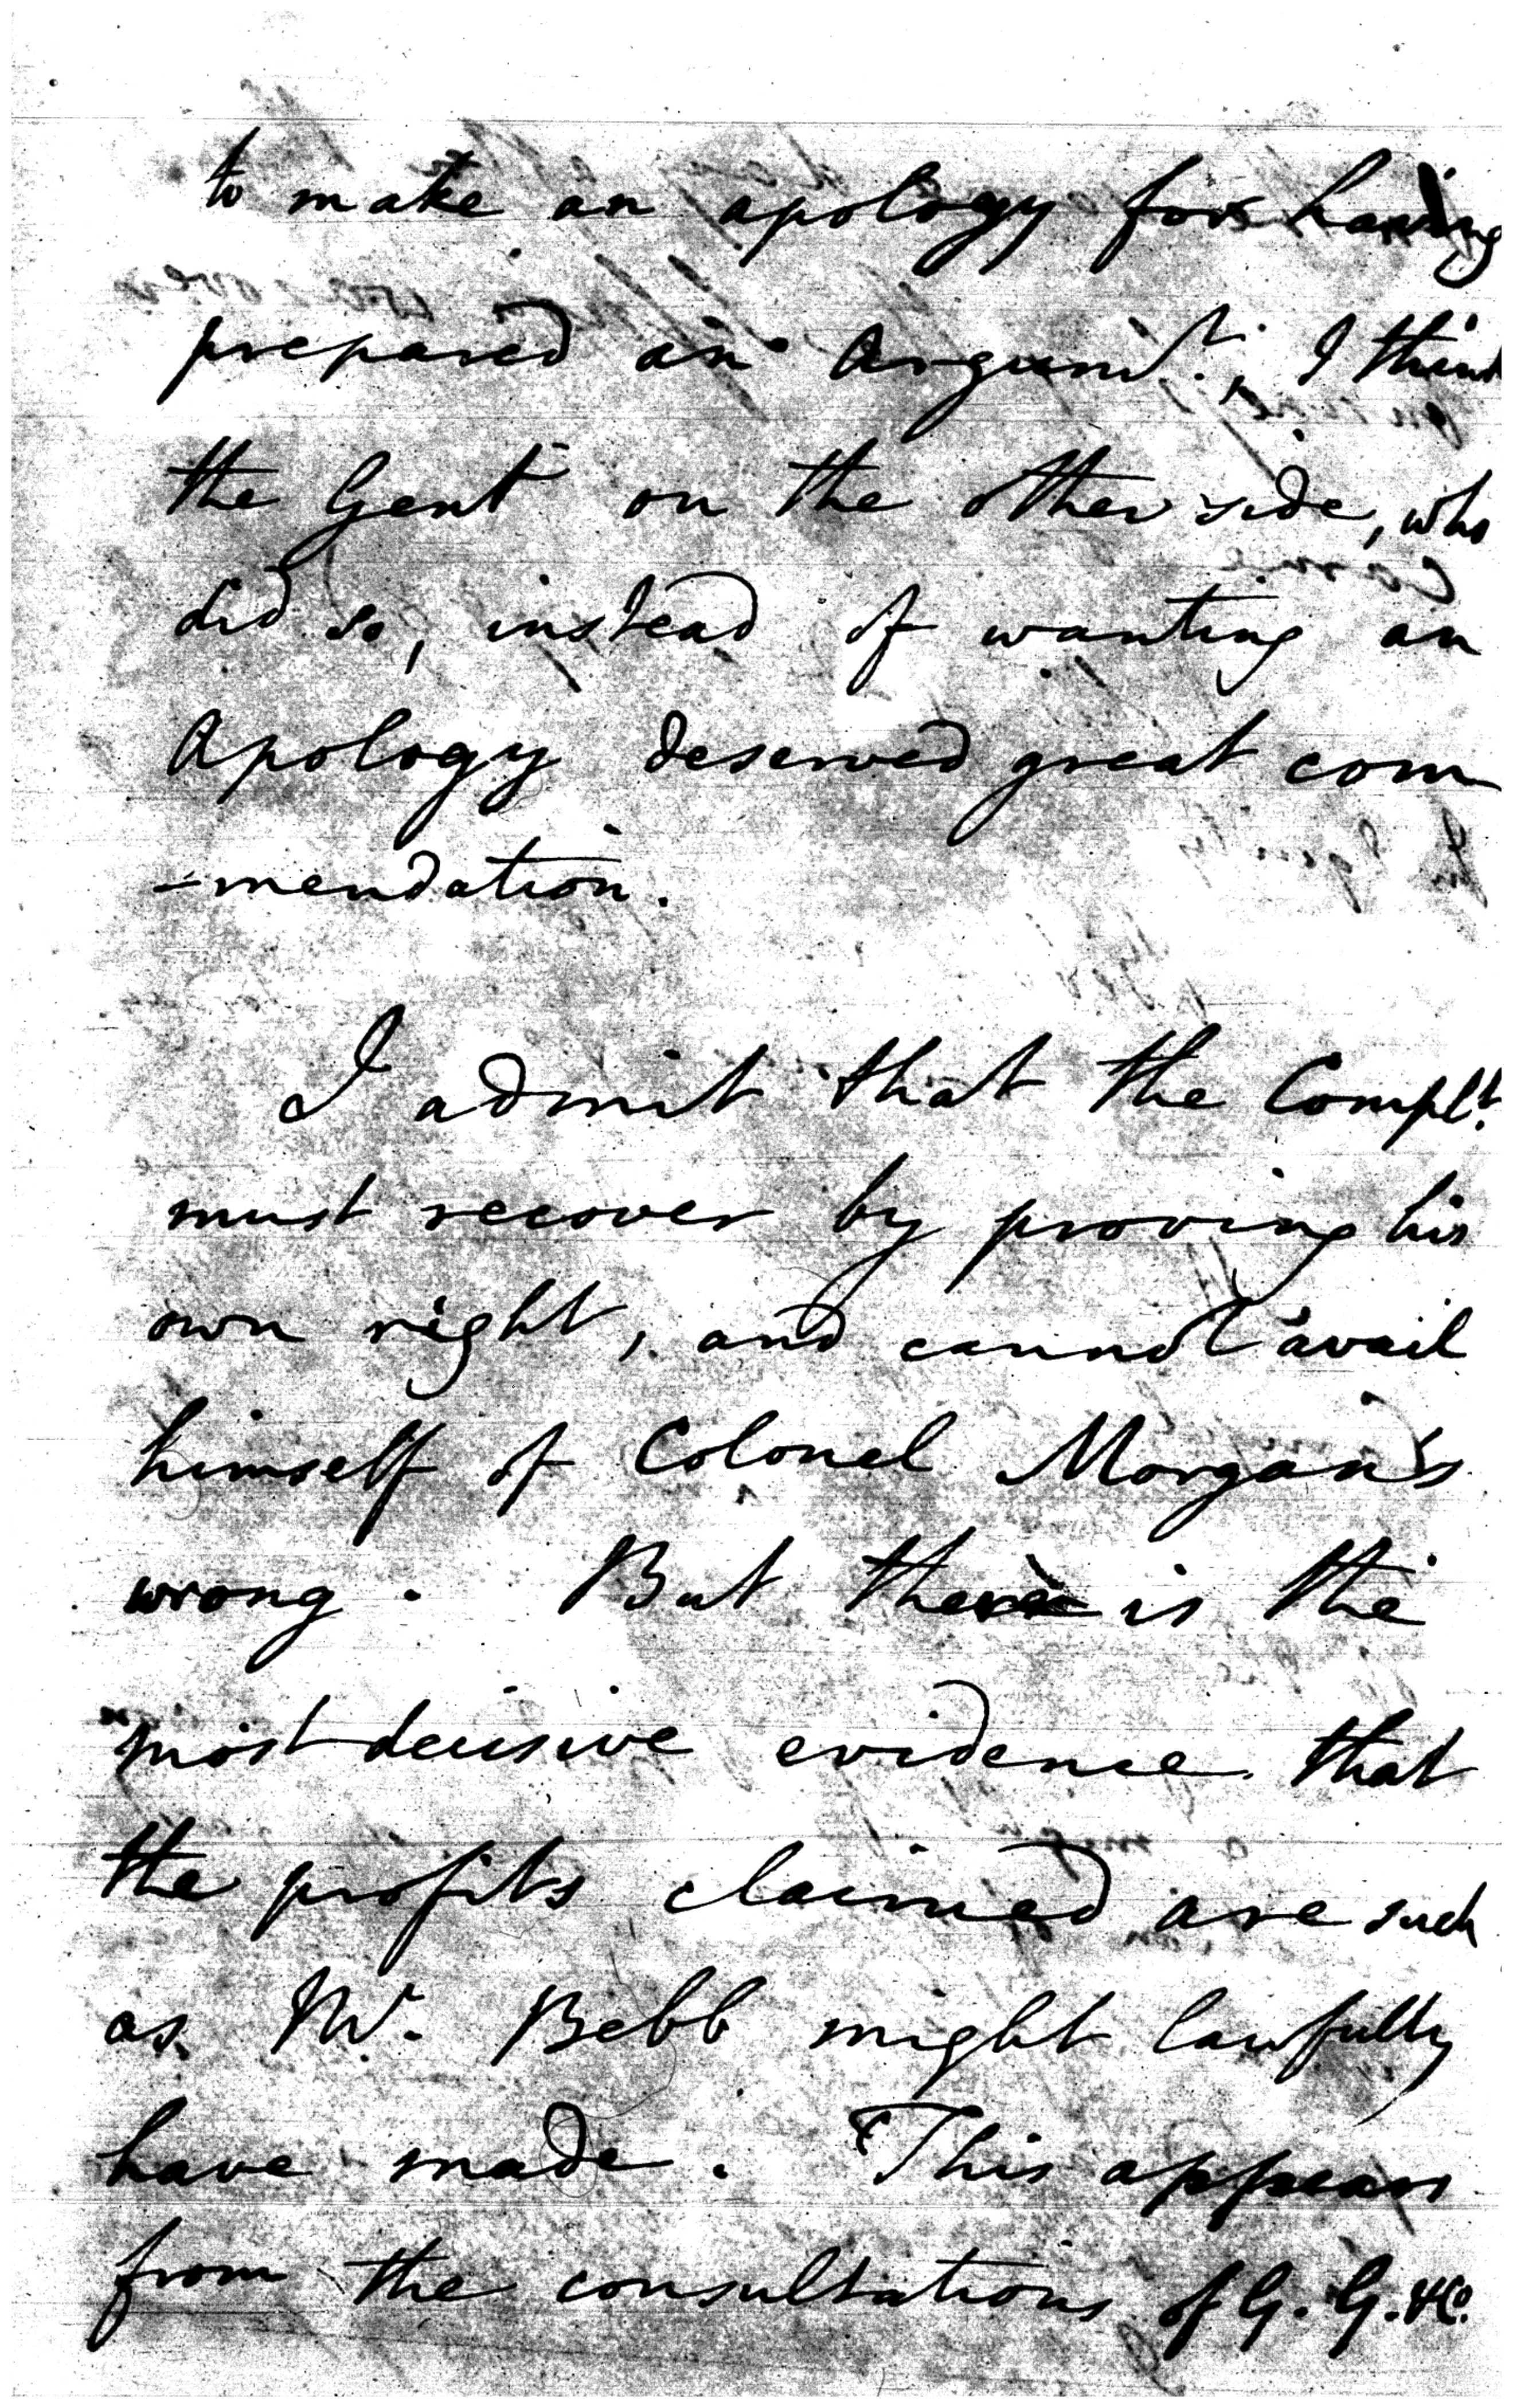 to make an apology for having
prepared an Argumt. I think
the Gent on the other side, who
did so, instead of wanting an
Apology deserved great com
-mendation.
I admit that the Complt.
must recover by proving his
own right, and cannot avail
himself of Colonel Morgan's
wrong. But there is the
most decisive evidence that
the profits claimed are such
as Mr. Bebb might lawfully
have made. This appears
from the consultations of G. G. & Co.